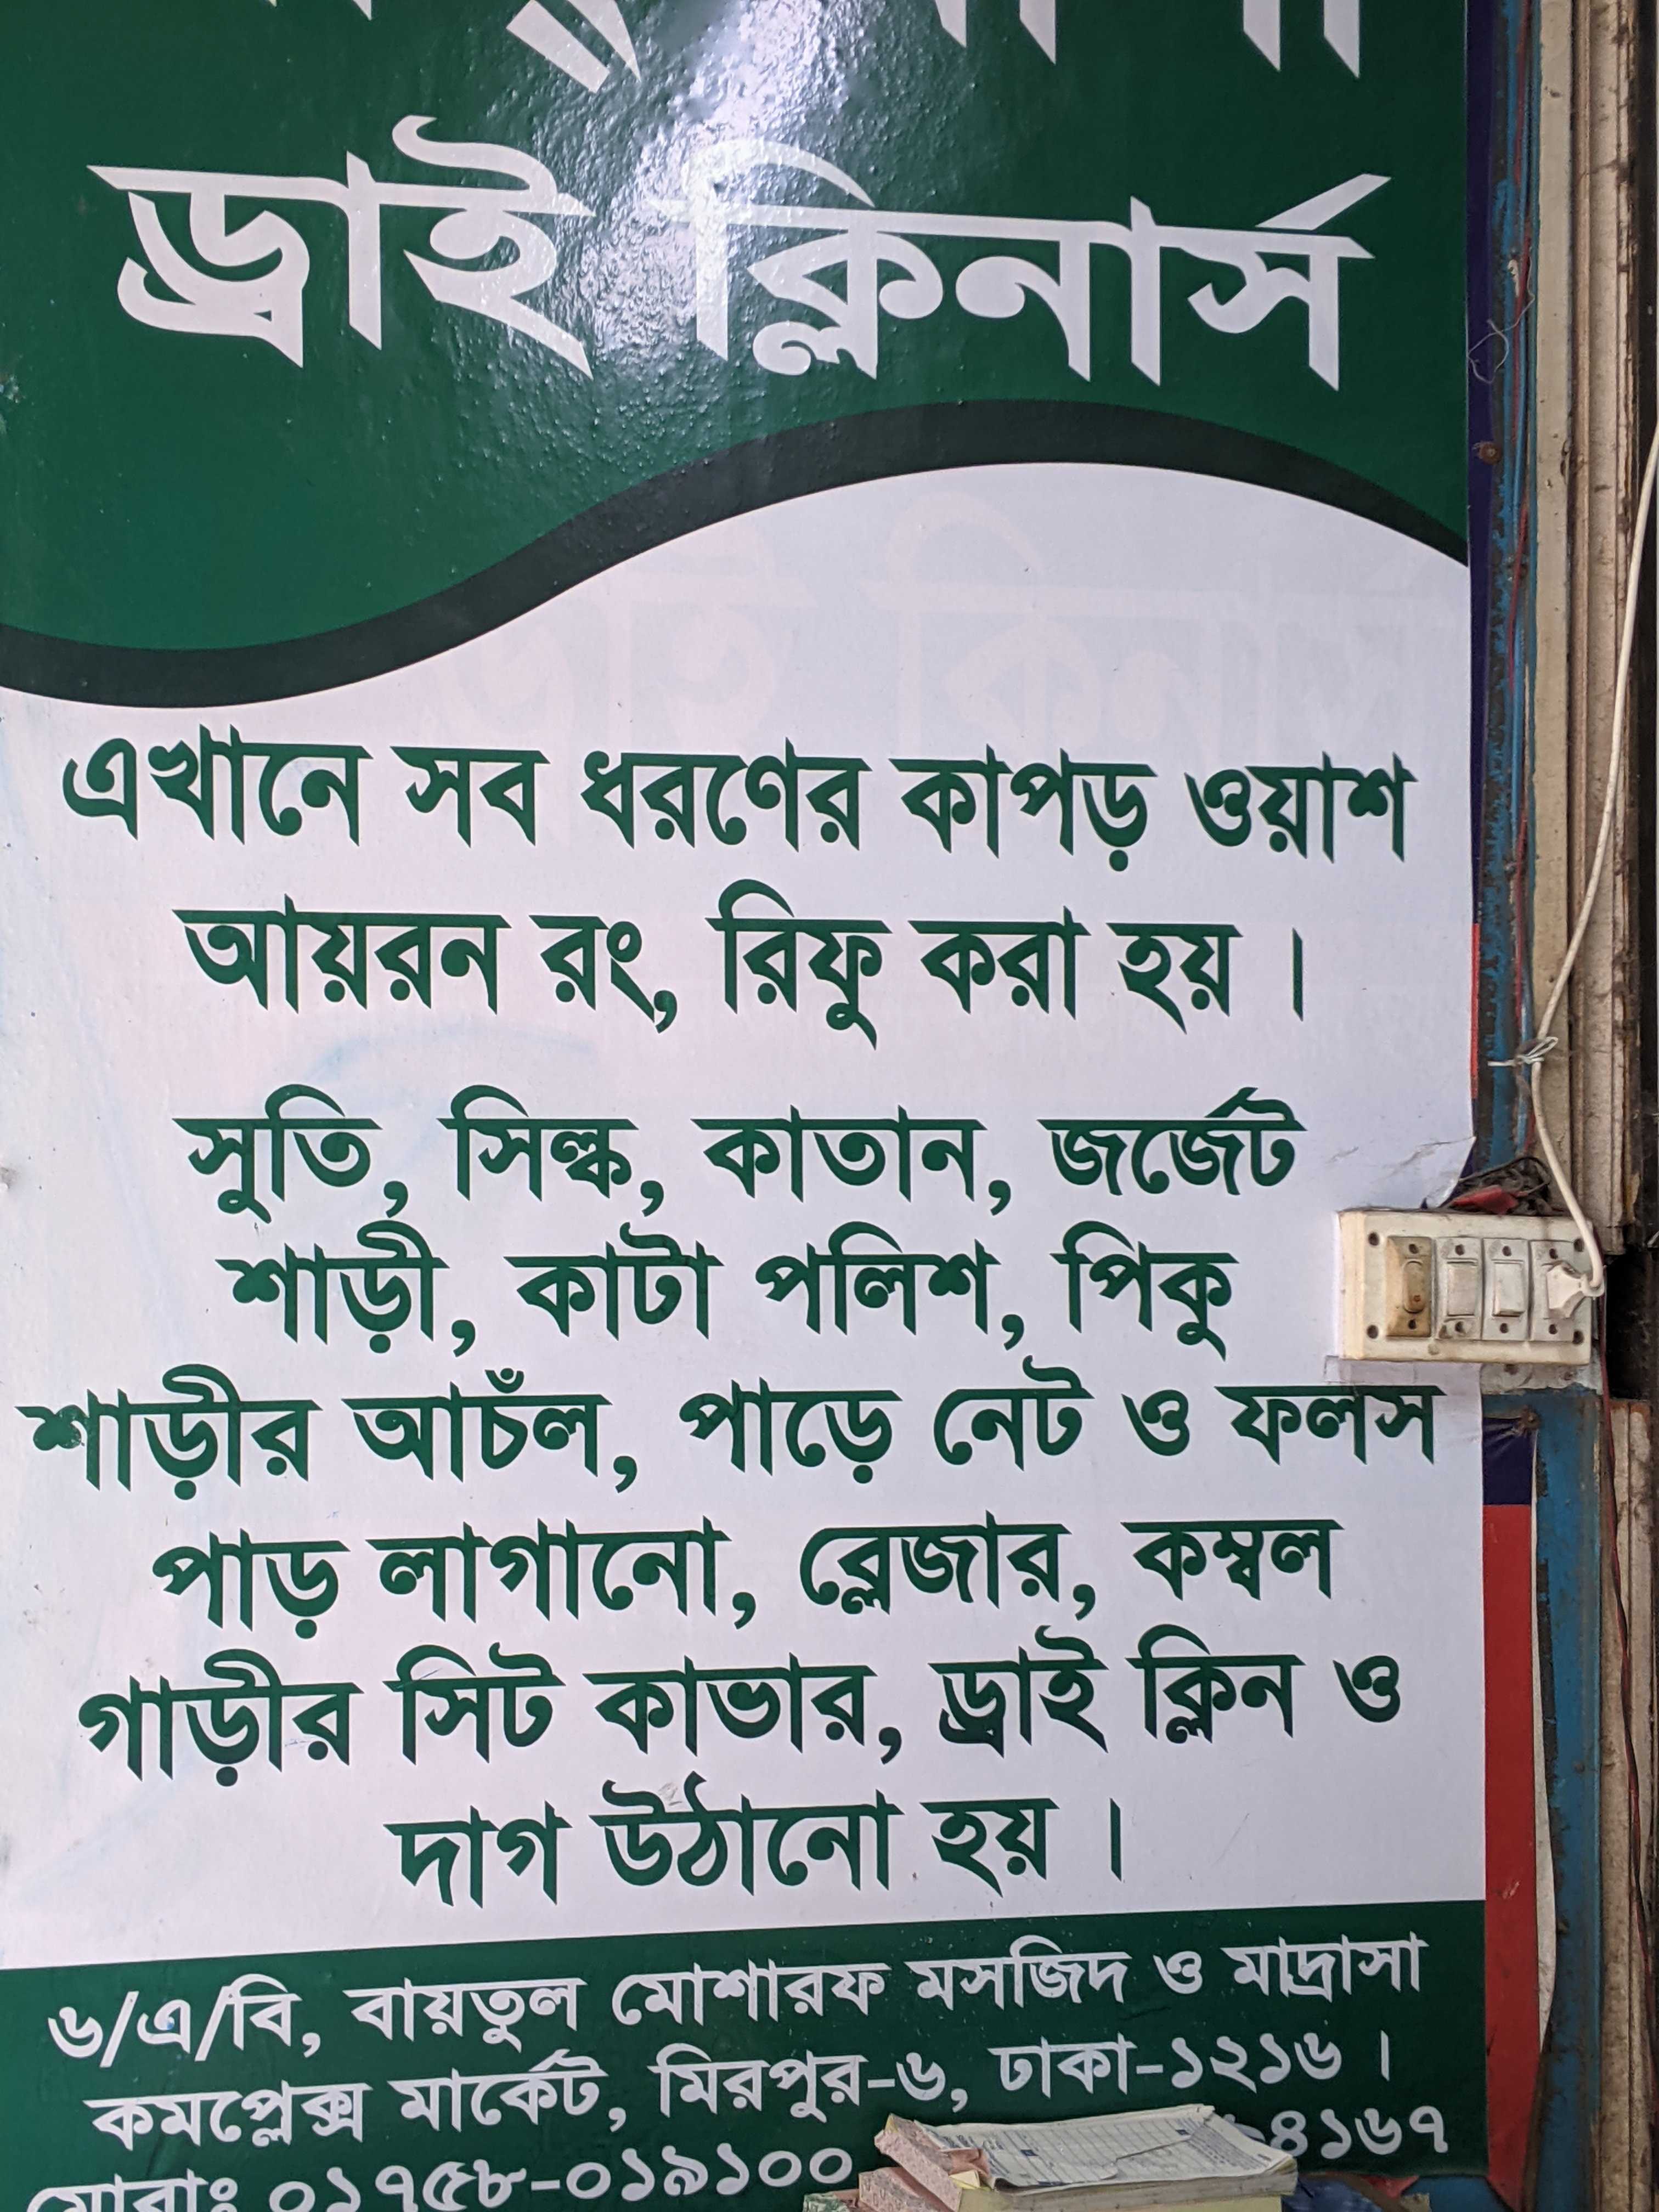 ড্রাই ক্লিনার্স
এখানে সব ধরণের কাপড় ওয়াশ
আয়রন রং, রিফু করা হয় ।
সুতি, সিল্ক, কাতান, জর্জেট
শাড়ী, কাটা পলিশ, পিকু
শাড়ীর আচঁল, পাড়ে নেট ও ফলস
পাড় লাগানো, ব্লেজার, কম্বল
গাড়ীর সিট কাভার, ড্রাই ক্লিন ও
দাগ উঠানো হয় ।
৬/এ/বি, বায়তুল মোশারফ মসজিদ ও মাদ্রাসা
কমপ্লেক্স মার্কেট, মিরপুর-৬, ঢাকা-১২১৬ ।
মোবাঃ ০১৭৫৮-০১৯১০০ ৪১৬৭